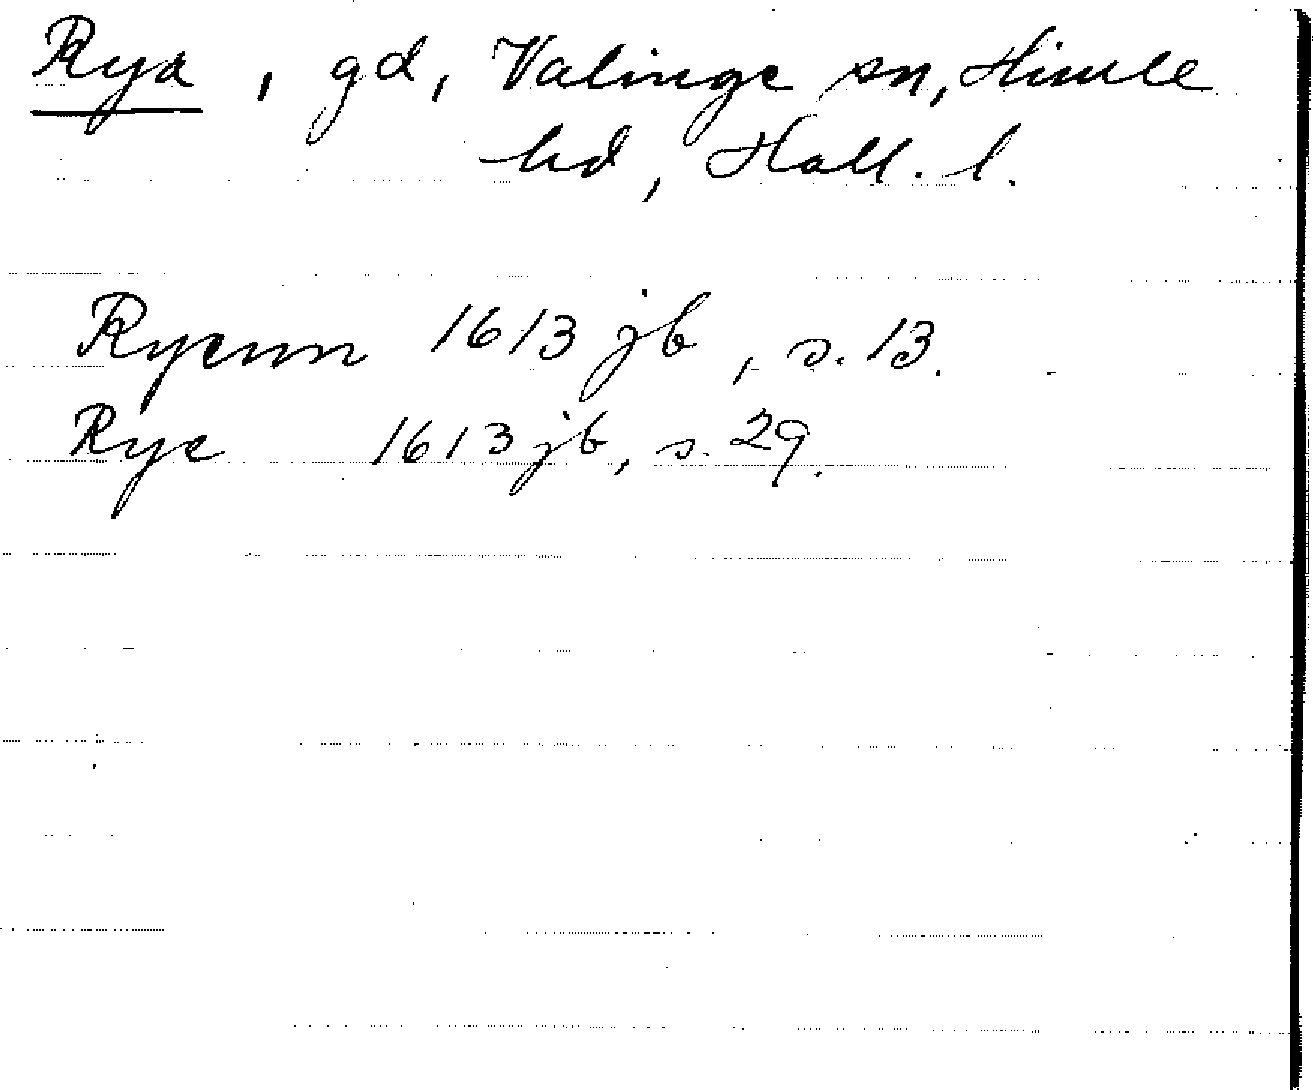 Rya, gd, Valinge sn, Himle
hd, Hall. l.
Ryenn 1613 jb, s. 13.
Rye 1613 jb, s. 29.